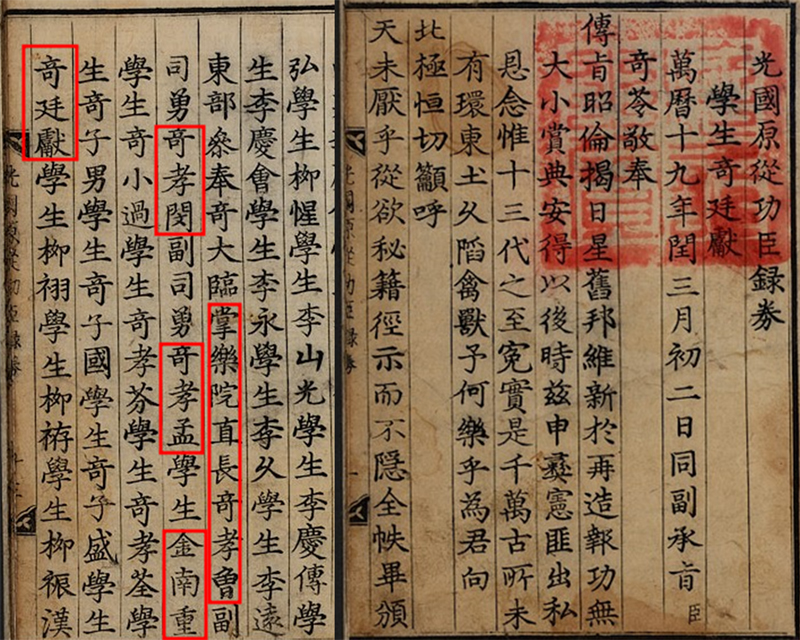 光國原從功臣録券
學生奇廷獻
萬曆十九年閏三月初二日同副承旨臣
奇苓敬奉
傳旨昭倫揭日星舊邦維新於再造報功無
大小賞典安得以後時茲申彝憲匪出私
恩念惟十三代之至冤實是千萬古所未
有環東土久陷禽獸予何樂乎為君向
北極恒切籲呼
天未厭乎從欲秘籍徑示而不隱全帙畢頒
光國原從功臣録券 一
弘學生柳惺學生李山光學生李慶傳學
生李慶會學生李永學生李久學生李遠
東部參奉奇大臨掌樂院直長奇孝曾副
司勇奇孝閔副司勇奇孝孟學生金南重
學生奇小過學生奇孝芬學生奇孝荃學
生奇子男學生奇子國學生奇子盛學生
奇廷獻學生柳祤學生柳祐學生柳裖漢
光國原從功臣録券